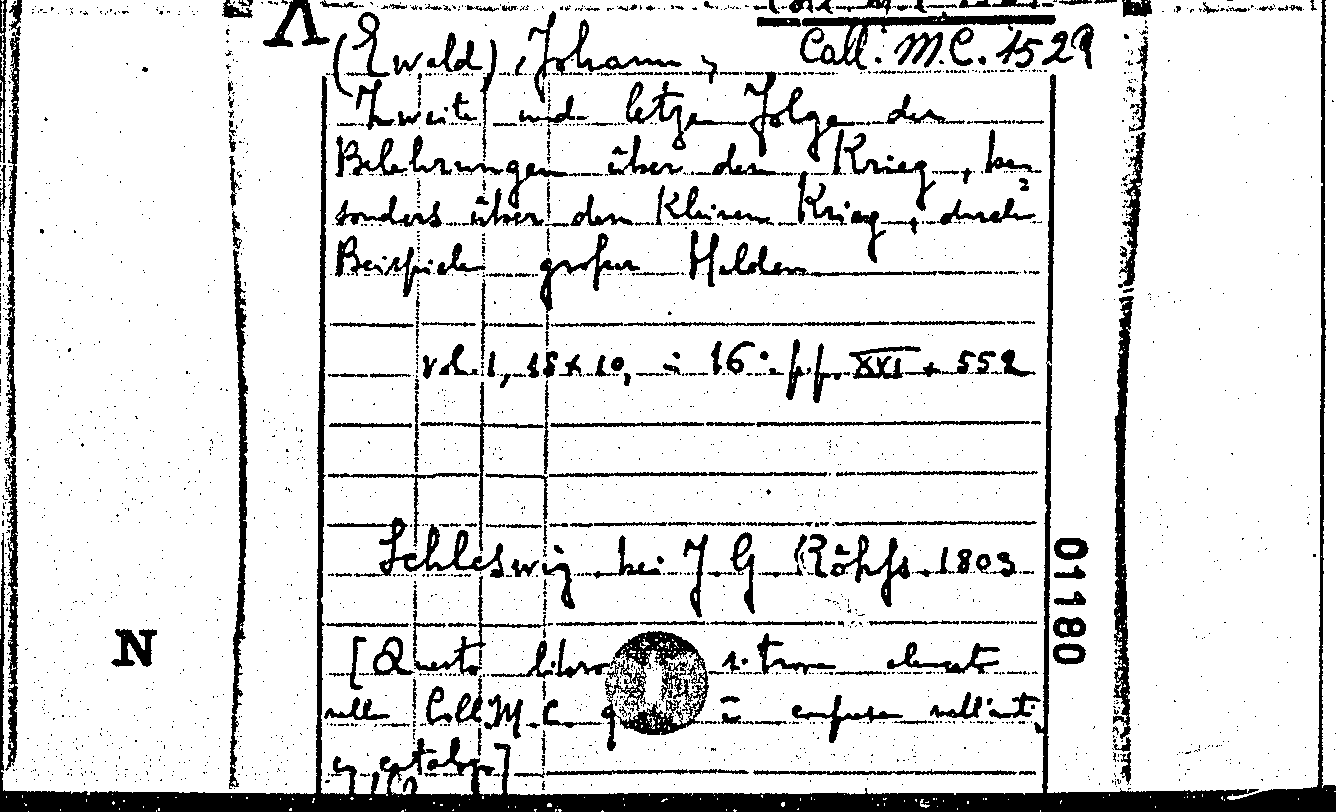 (Ewald), Johann, Coll. M.C. 1529
Zweite und letze Folge der
Belehrungen über den Krieg, be=
sonders über den kleinen Krieg, durch
Beispiele großer Helden
vol. 1, 15x10, in 16°. pp. XXI + 552
Schleswig bei J G Röhß. 1803
[Questo libro si trova elencato
nella Coll. M.C. è confusa nell'anti
co catalogo]
01180
N